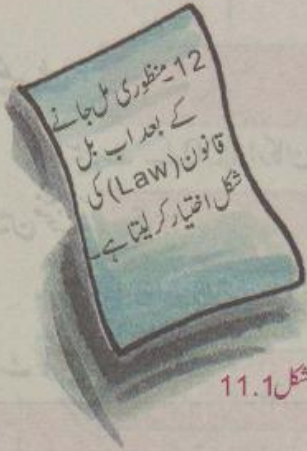 12۔منظوری مل جانے
کے بعد اب بل
قانون(Law) کی
شکل اختیار کر لیتا ہے۔
شکل 11.1